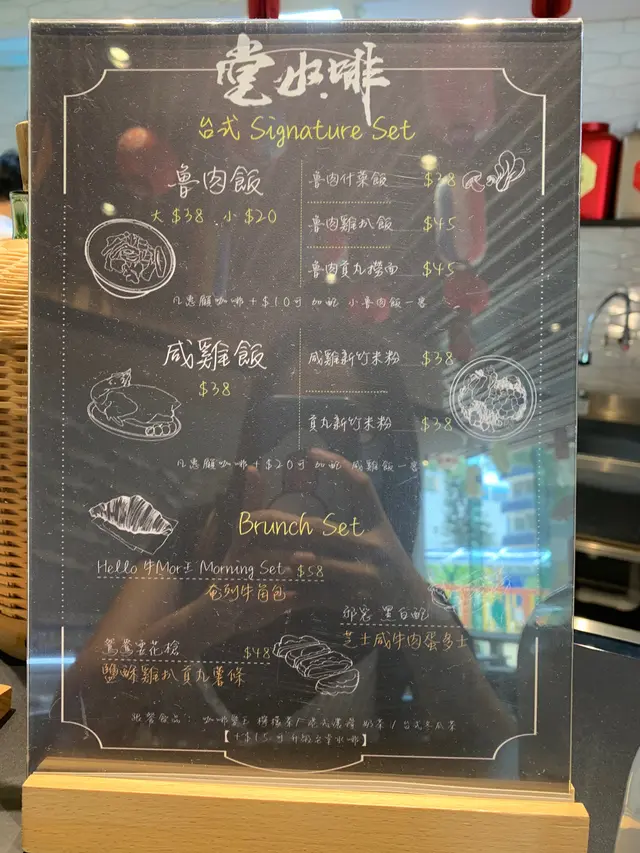 堂水啡
台式 Signature Set
魯肉飯
大 $38 小 $20
魯肉什菜飯 $38
魯肉雞扒飯 $45
魯肉貢丸撈面 $45
凡惠顧咖啡+$10可加配 小魯肉飯一客
咸雞飯
$38
咸雞新竹米粉 $38
貢丸新竹米粉 $38
凡惠顧咖啡+$20可加配 咸雞飯一客
Brunch Set
Hello 牛Mor王 Morning Set $58
奄列牛角包
鴛鴦雪花槍 $48
鹽酥雞扒貢丸薯條
黑白配
芝士咸牛肉蛋多士
奶茶 / 台式冬瓜茶